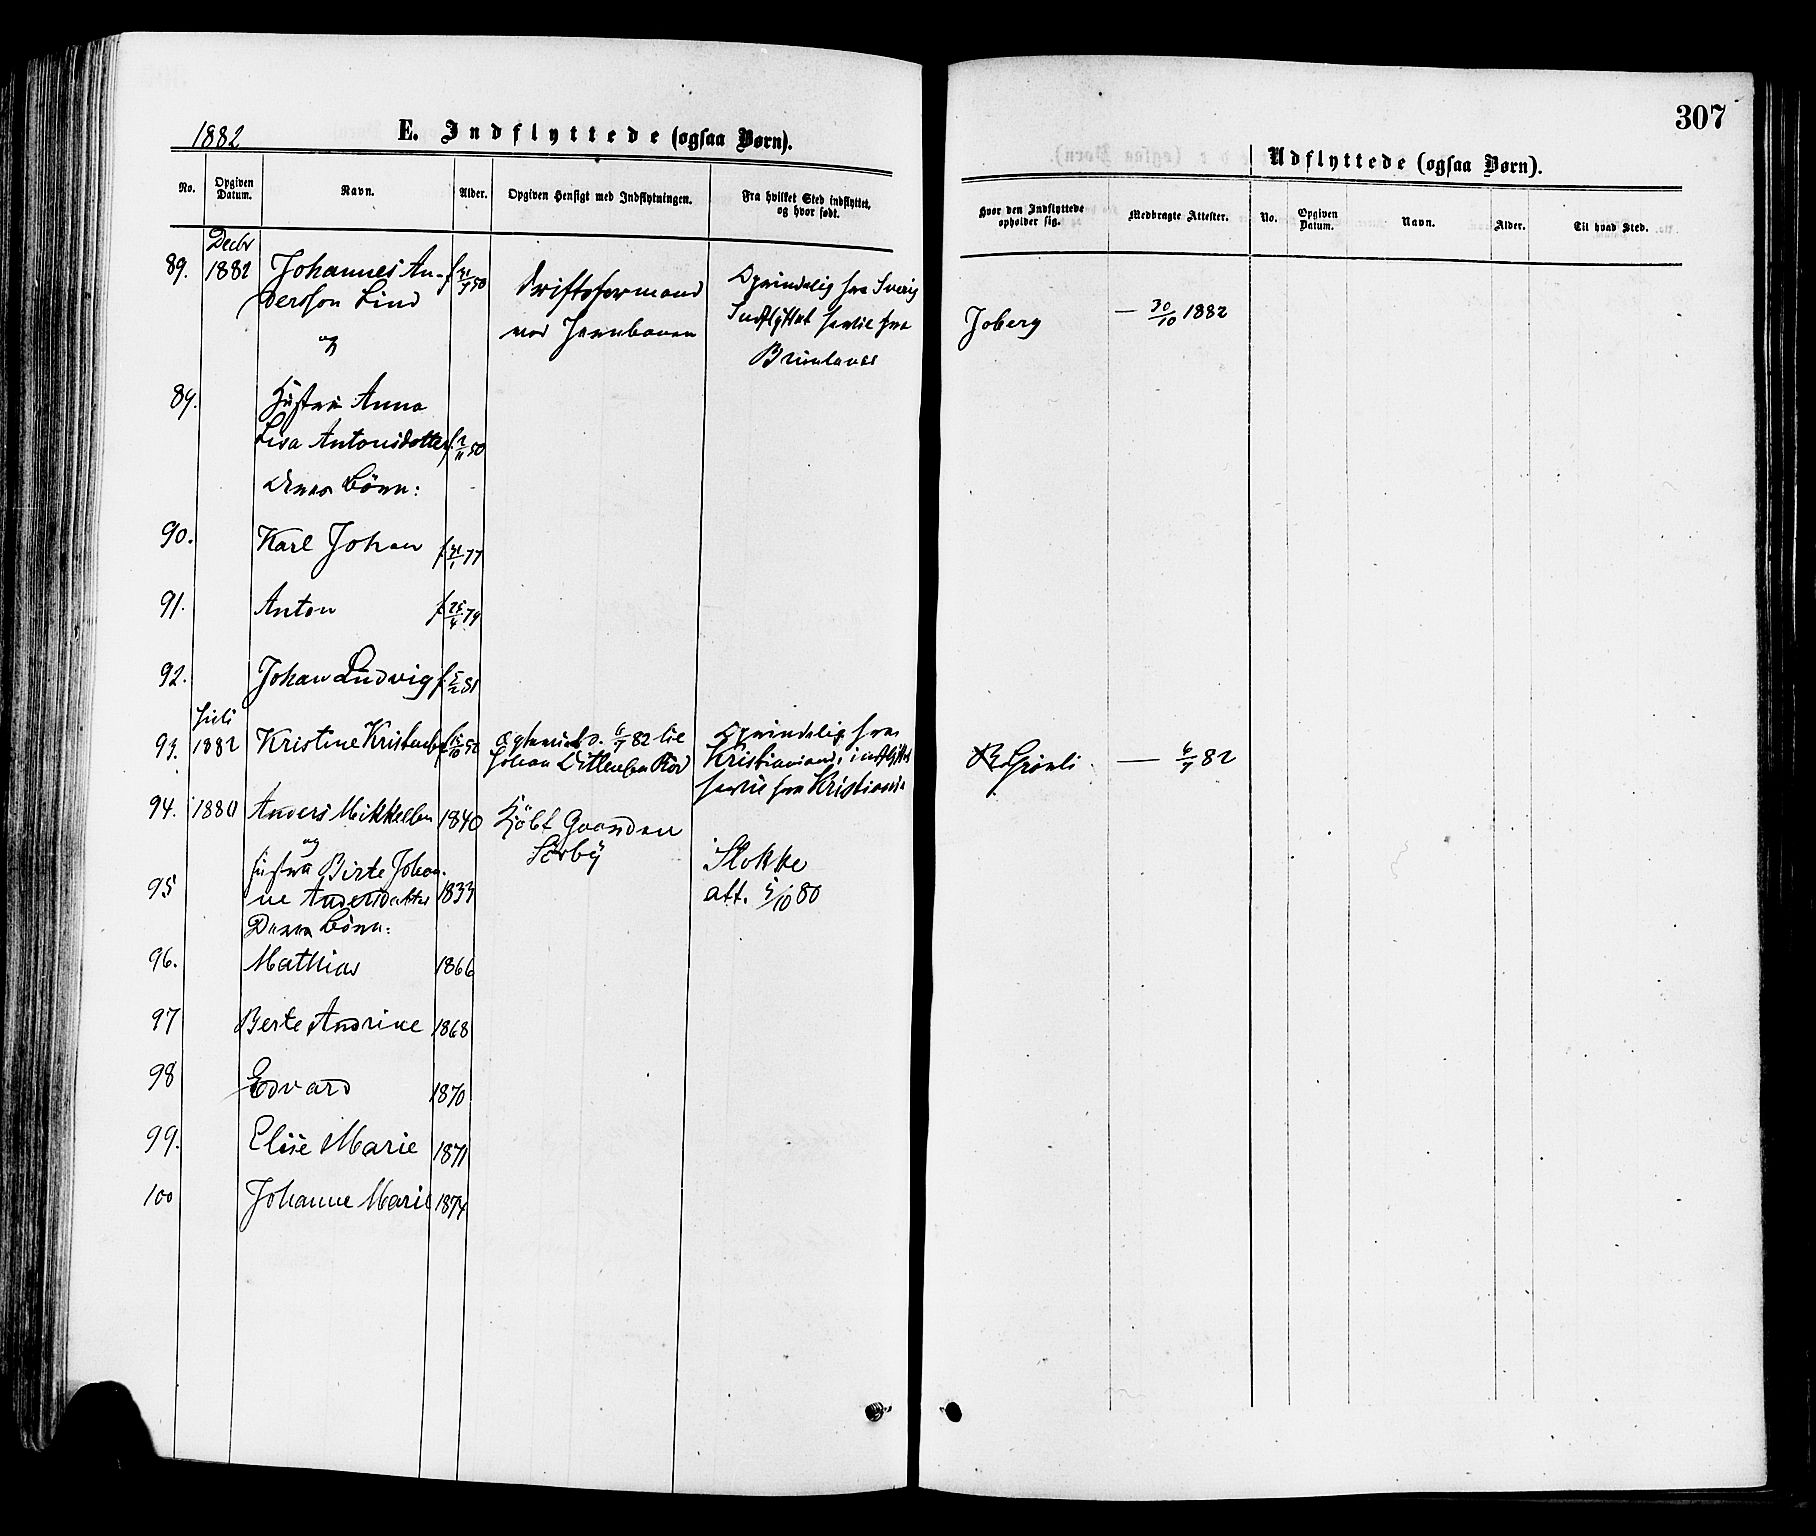 307
1882 E. Indflyttede (ogsaa Børn).
Udflyttede (ogsaa Børn).
No. Opgiven Datum. Navn. Alder. Opgiven Hensigt med Indflytningen. Fra hvilket Sted indflyttet, og hvor født.
Hvor den Indflyttede opholder sig. Medbragte Attester. No. Opgiven Datum. Navn. Alder. Til hvad Sted.
Decbr
89. 1882 Johannes An-
dersson Lind
og
Driftsformand
ved Jernbanen
Oprindelig fra Sverig
Indflyttet hertil fra
Brunlanes
Joberg — 30/10 1882
89. Hustru Anna
Lisa Antonsdotter f. 2/11 50
deres Börn:
90. Karl Johan f. 31/1 77
91. Anton f. 25/4 79
92. Johan Ludvig f. 5/2 81
Juli
93. 1882 Kristine
d. 6/7 82 til
Johan
Oprindelig fra
Kristiansand, indflyttet
hertil fra Kristiania
Grönli — 6/7 82
94. 1880 Anders Mikkelsen 1840 Kjöbt Gaarden
Sörby
og
Hustru Birte Johan-
95 ne Andersdatter 1833
Stokke
att. 5/10 80
Deres Börn:
96. Mathias 1866
97 Berte Andrine 1868
98 Edvard 1870
99. Elise Marie 1871
100 Johanne Marie 1874